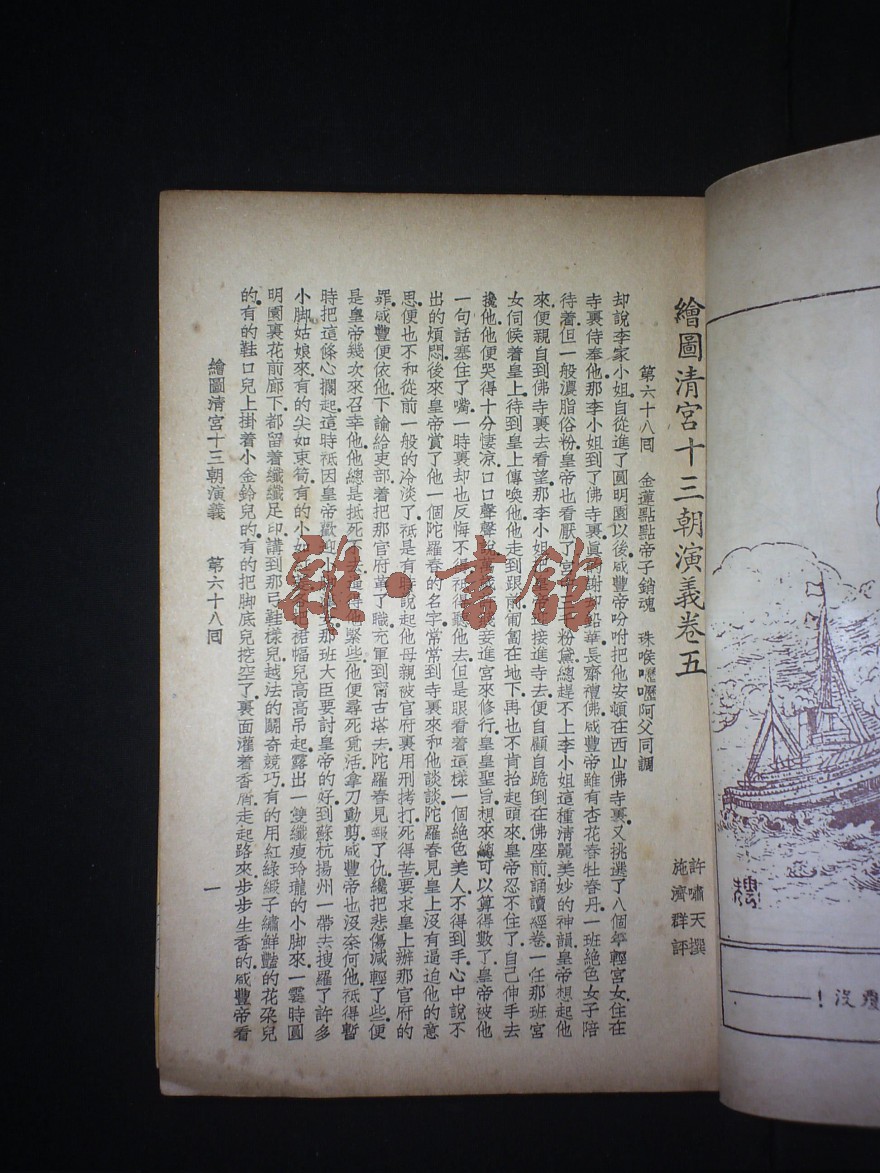 繪圖清宮十三朝演義卷五
許嘯天撰
施濟群評
第六十八回　金蓮點點帝子銷魂　珠喉嚦嚦阿父同調
却說李家小姐自從進了圓明園以後咸豐帝吩咐把他安頓在西山佛寺裏又挑選了八個年輕宮女住在
寺裏侍奉他那李小姐到了佛寺裏眞謝鉛華長齋禮佛咸豐帝雖有杏花春牡丹春一班絕色女子陪
待着但一般濃脂俗粉皇帝也看厭了宮粉黛總趕不上李小姐這種清麗美妙的神韻皇帝想起他
來便親自到佛寺裏去看望那李小姐接進寺去便自顧自跪倒在佛座前誦讀經卷一任那班宮
女伺候着皇上待到皇上傳喚他他走到跟前匍匐在地下再也不肯抬起頭來皇帝忍不住了自己伸手去
攙他他便哭得十分悽凉口口聲聲說妾進宮來修行皇皇聖旨想來總可以算得數了皇帝被他
一句話塞住了嘴一時裏却也反悔不去但是眼看着這樣一個絕色美人不得到手心中說不
出的煩悶後來皇帝賞了他一個陀羅春的名字常常到寺裏來和他談談陀羅春見皇上沒有逼迫他的意
思便也不和從前一般的冷淡了祇是有時說起他母親被官府裏用刑拷打死得苦要求皇上辦那官府的
罪咸豐便依他下諭給吏部着把那官府革了職充軍到甯古塔去陀羅春見報了仇纔把悲傷減輕了些便
是皇帝幾次來召幸他他總是抵死不緊些他便尋死覓活拿刀動剪咸豐帝也沒奈何他祇得暫
時把這條心擱起這時祇因皇帝歡迎小那班大臣要討皇帝的好到蘇杭揚州一帶去搜羅了許多
小脚姑娘來有的尖如束筍有的小如裙幅兒高高吊起露出一雙纖瘦玲瓏的小脚來一霎時圓
明園裏花前廊下都留着纖纖足印講到那弓鞋樣兒越法的鬭奇競巧有的用紅綠緞子繡鮮豔的花朶兒
的有的鞋口兒上掛着小金鈴兒的有的把脚底兒挖空了裏面灌着香屑走起路來步步生香的咸豐帝看
繪圖清宮十三朝演義　第六十八回　一
雜·書館
沒！